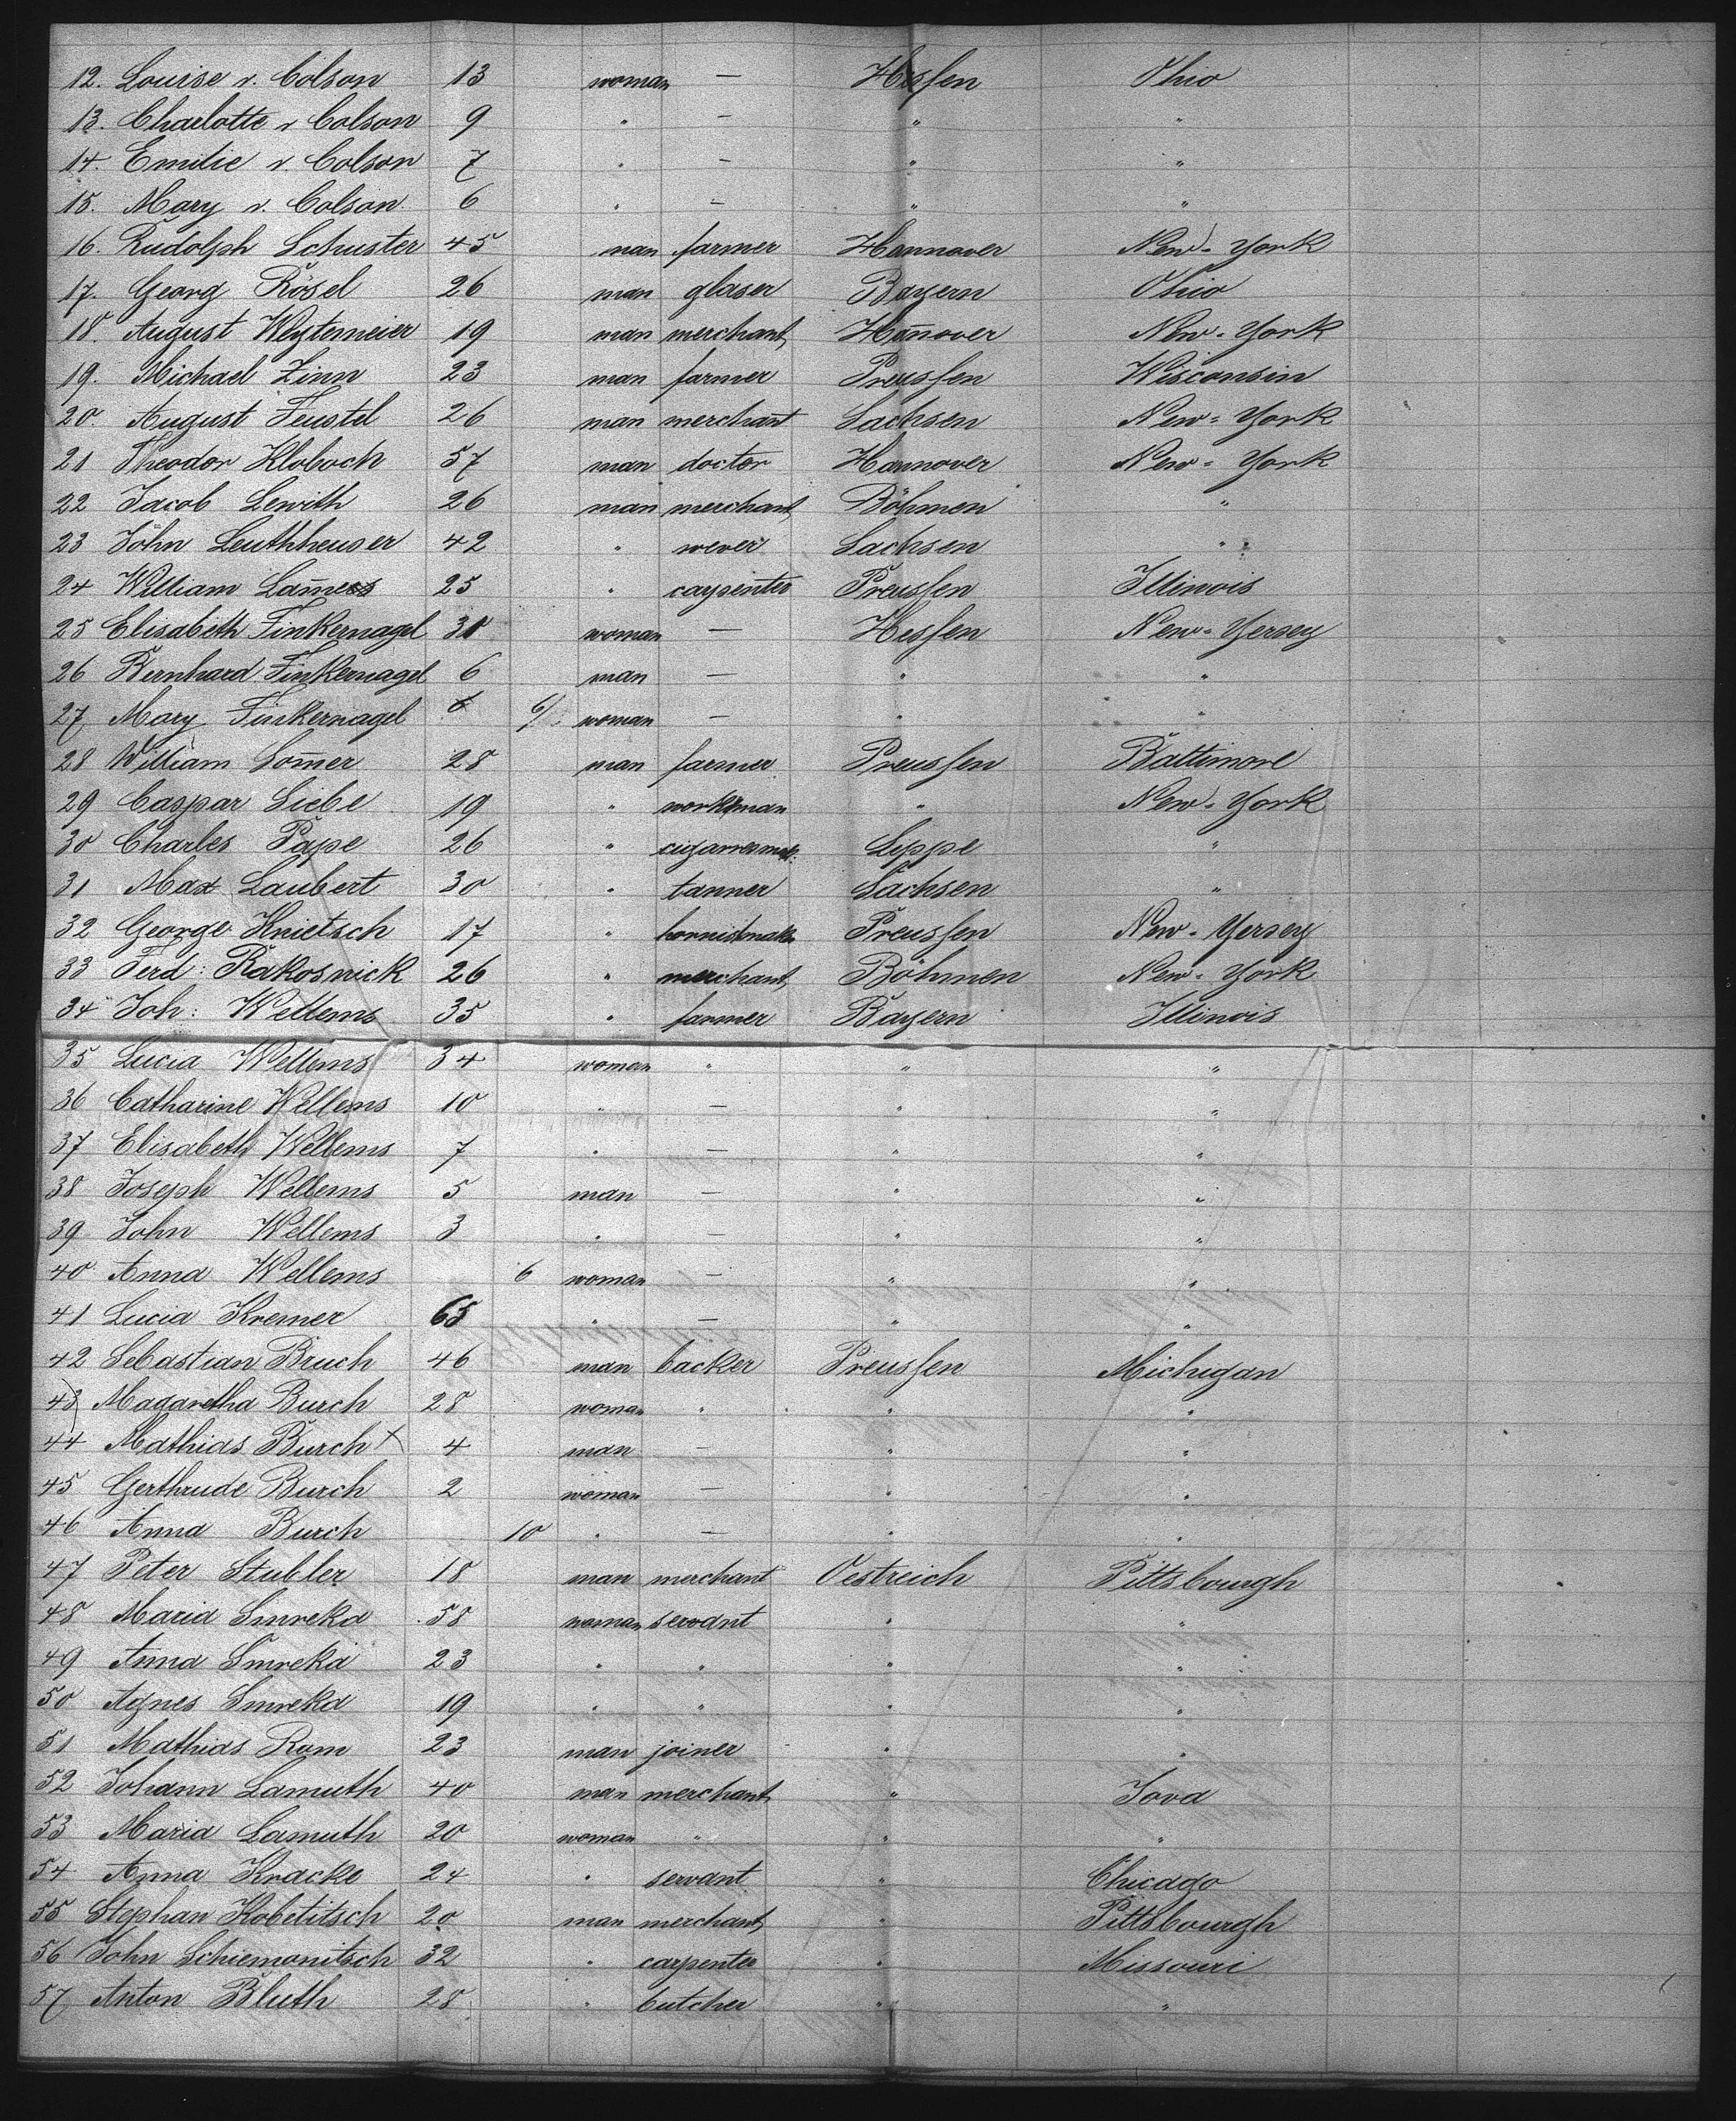 12. Louise v. Colson 13 woman — Hessen Ohio
13. Charlotte v Colson 9 " — " "
14. Emilie v. Colson 7 " — " "
15. Mary v. Colson. 6 " — " "
16. Rudolph Schuster 45 man farmer Hannover New-York
17. Georg Rösel 26 man glaser Bayern Ohio
18. August Weytemeier 19 man merchant Han̄over New-York
19. Michael Zinn 23 man farmer Preussen Wisconsin
20. August Feustel 26 man merchant Sachsen New-York
21 Theodor Kloboch 57 man doctor Hannover New-York
22 Jacob Lewith 26 man merchant Böhmen "
23 John Leuthheuser 42 " wever Sachsen "
24 William 25 " carpenter Preussen Illinois
25 Elisabeth Finkernagel 30 woman — Hessen New-Yersey
26 Bernhard Finkernagel 6 man — " "
27 Mary Finkernagel 6/ woman — " "
28 William Som̄er 28 man farmer Preussen Baltimore
29 Caspar Liebe 19 " workman " New-York
30 Charles Pape 26 " cigarresmak: Lippe "
31 Max Laubert 30 " tanner Sachsen "
32 George Knietsch 17 " Preussen New-Yersey
33 Ferd: Rakosnick 26 " merchant Böhmen New-York
34 Joh: Wellems 35 " farmer Bayern Illinois
35 Lucia Wellems 34 woman " " "
36 Catharine Wellems 10 " — " "
37 Elisabeth Wellems 7 " — " "
38 Joseph Wellems 5 man — " "
39 John Wellems 3 " — " "
40 Anna Wellems 6 woman — " "
41 Lucia Kremer 65 " — " "
42 Sebastian Bruch 46 man backer Preussen Michigan
43 Magaretha Burch 28 woman " " "
44 Mathias Burch X 4 man — " "
45 Gerthrude Burch 2 woman — " "
46 Anna Burch 10 " — " "
47 Peter Stubler 18 man merchant Oestreich Pittsbourgh
48 Maria Smreka 58 woman servant " "
49 Anna Smreka 23 " " " "
50 Agnes Smreka 19 " " " "
51 Mathias Rom 23 man joiner " "
52 Johann Lamuth 40 man merchant " Jova
53 Maria Lamuth 20 woman " " "
54 Anna Kracke 24 " servant " Chicago
55 Stephan Kobetitsch 20 man merchant " Pittsbourgh
56 John Schiemonitsch 32 " carpenter " Missouri
57 Anton Bluth 28 " butcher " "